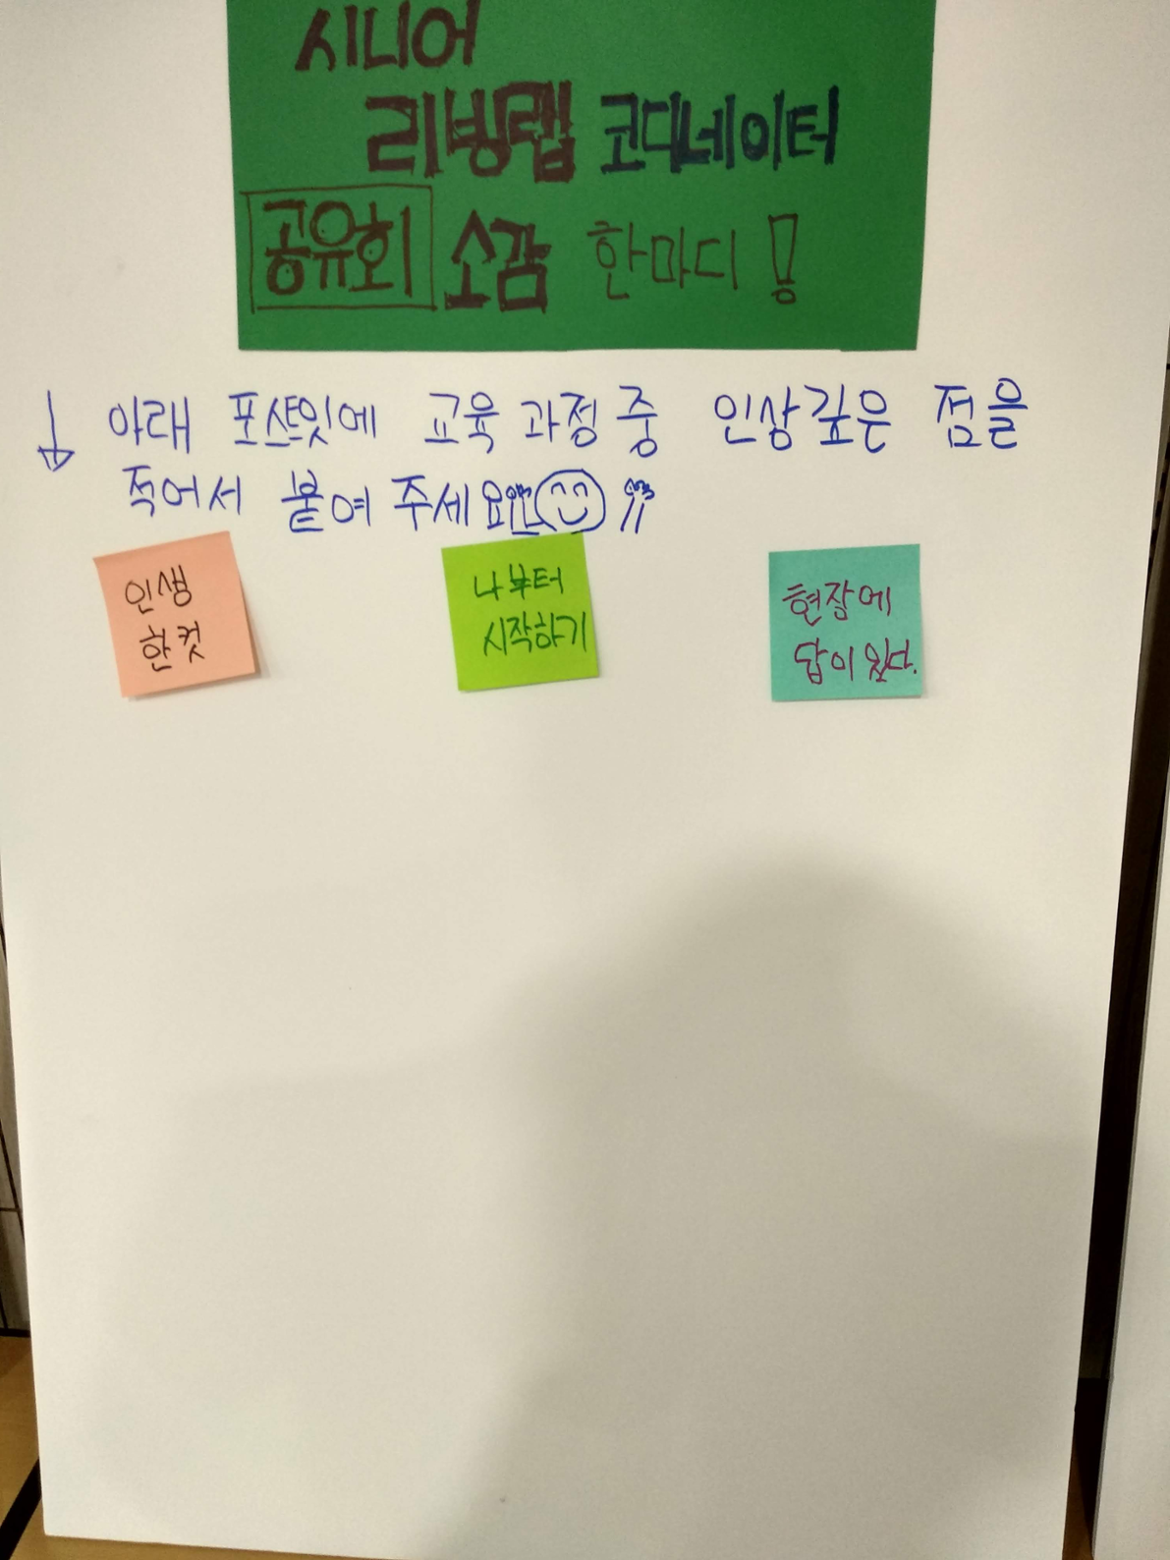 시니어
리빙랩 코디네이터
공유회 소감 한마디!
↓ 아래 포스트잇에 교육 과정 중 인상깊은 점을
적어서 붙여 주세요
인생
한컷
나부터
시작하기
현장에
답이 있다.